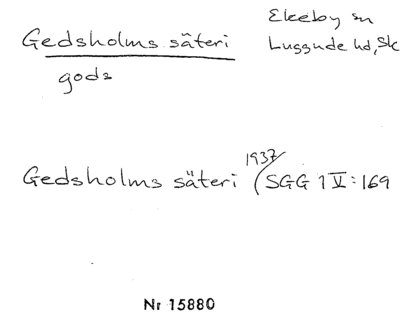 Gedsholms säteri
gods
Ekeby sn
Luggude hd, Sk
Gedsholms säteri 1937/ (SGG 1 V:169
Nr 15880